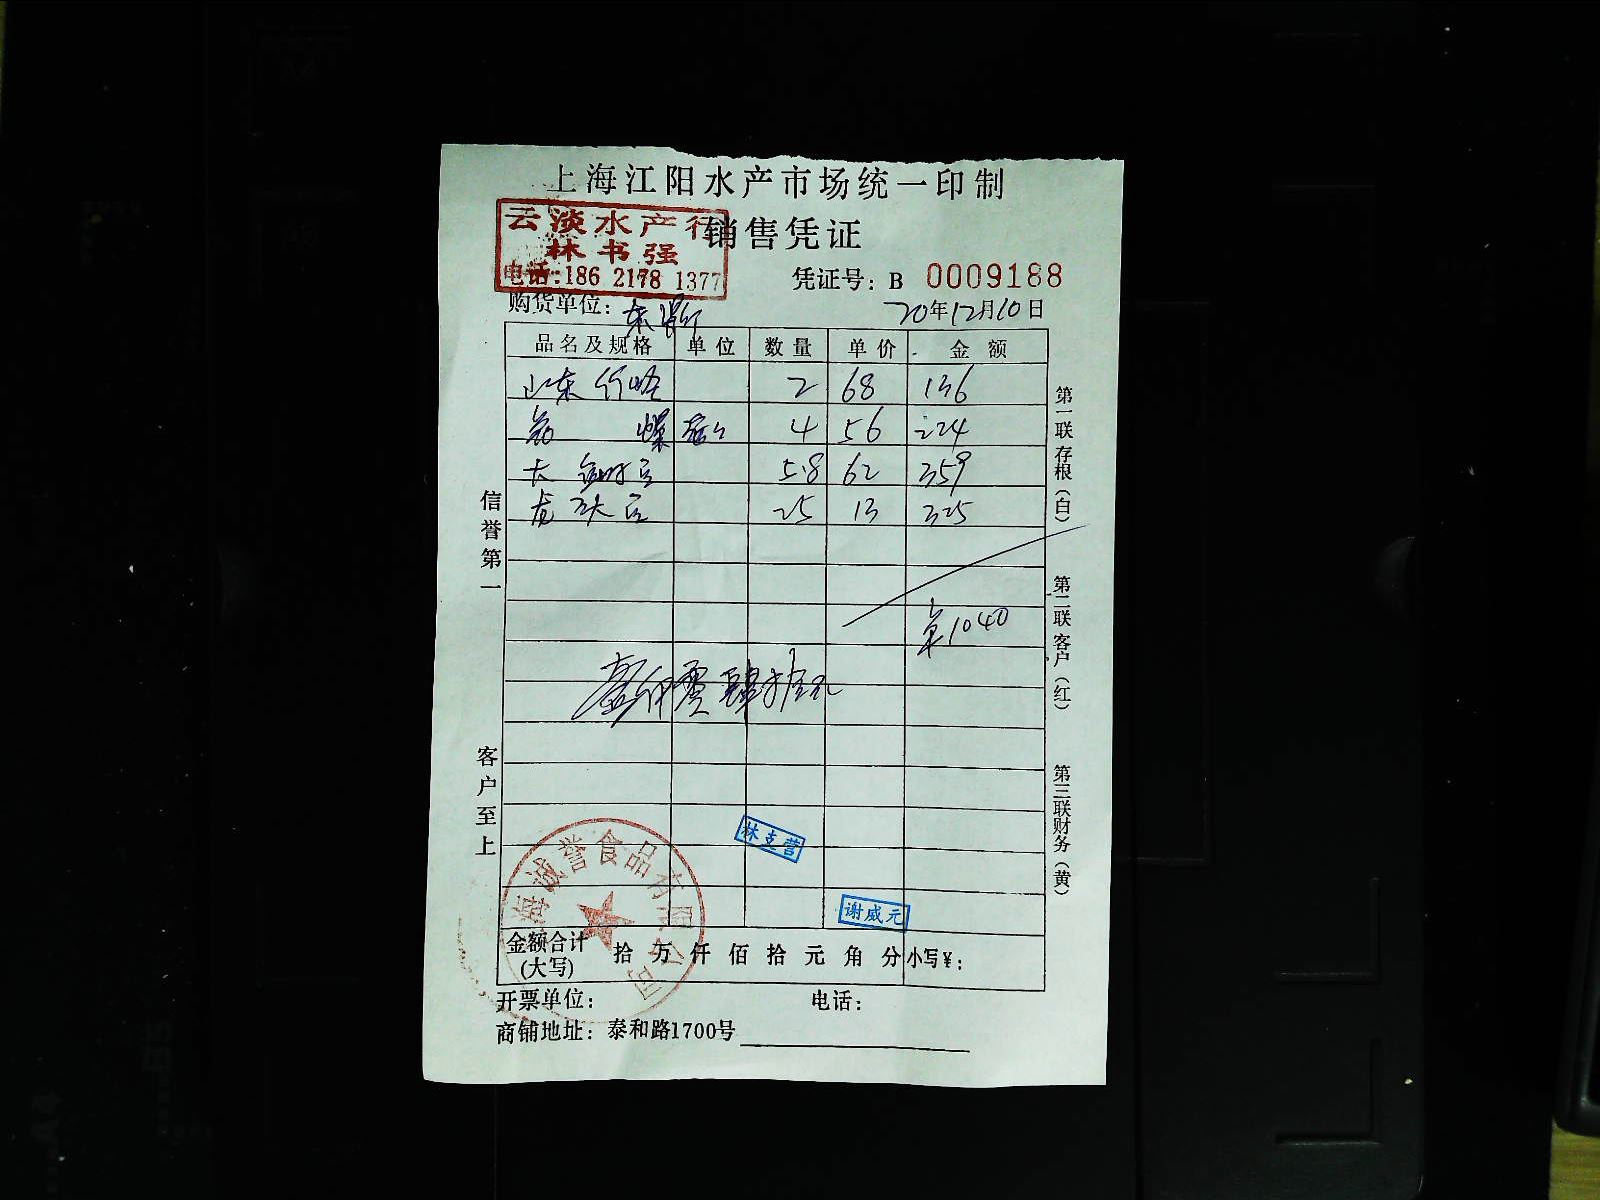 上海江阳水产市场统一印制
云淡水产行
销售凭证
林书强
电话:186 2178 1377
凭证号: B 0009188
购货单位:
20年12月10日
品名及规格 单位 数量 单价 金额
山东竹蛏 2 68 136
螺 4 56 224
5.8 62 359
虎头 25 13 325
1040
壹仟零肆拾元
第一联存根(白)
第二联客户(红)
第三联财务(黄)
信誉第一
客户至上
林支营
谢威元
海诚誉食品有限公司
金额合计(大写) 拾 万 仟 佰 拾 元 角 分 小写¥:
开票单位: 电话:
商铺地址: 泰和路1700号